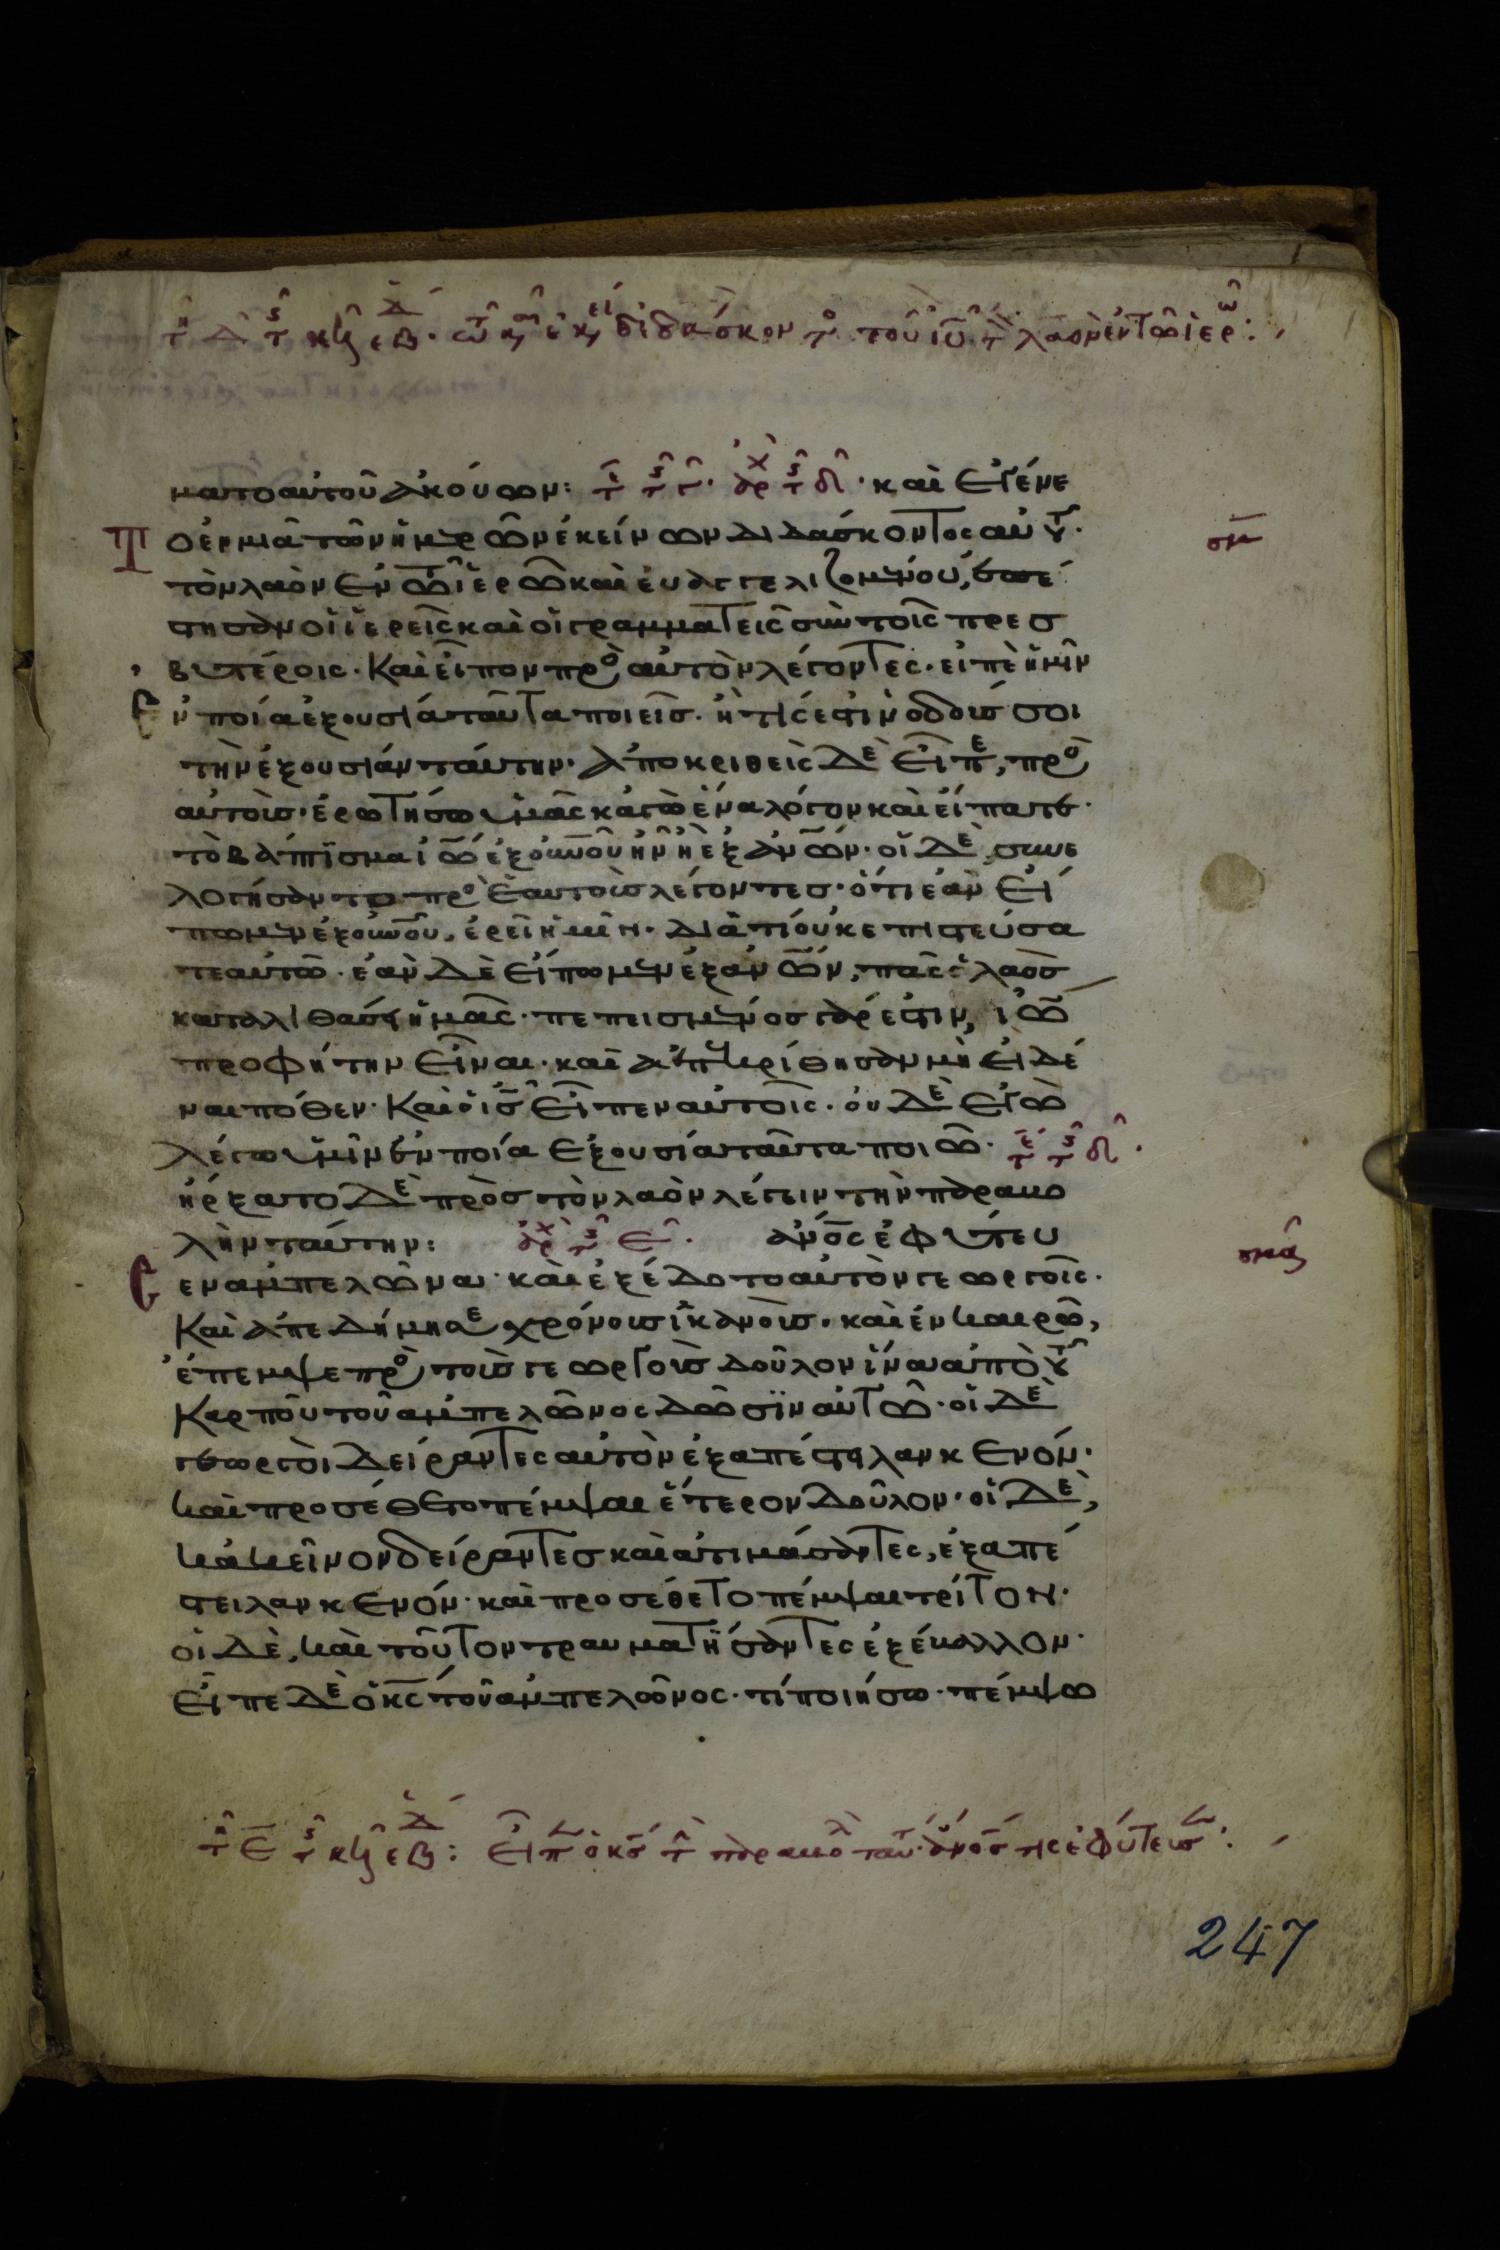 τῇ Δ τῆς κζ ἑβ. τῶ κ ἐκ διδάσκον το τοῦ ἰῦ τ λαὸν ἐν τῶ ἱερῶ:
ματο αὐτοῦ ἀκούων: τ τ γ. ἀρχ τ δι. καὶ ἐγένε
Το ἐν μιᾶ τῶν ἡμερῶν ἐκείνων διδάσκοντος αὐτοῦ. σμ
τὸν λαὸν ἐν τῶ ἱερῶ καὶ εὐαγγελιζομένου, ἐπέ
στησαν οἱ ἱερεῖς καὶ οἱ γραμματεῖς σὺν τοῖς πρεσ
βυτέροις. Καὶ εἶπον πρὸ αὐτὸν λέγοντες. εἰπὲ ἡμῖν
ἐν ποία ἐξουσία ταῦτα ποιεῖσ. ἢ τίς ἐστιν ὁ δούσ σοι
τὴν ἐξουσίαν ταύτην. ἀποκριθεὶς δὲ εἶπε, πρὸ
αὐτοὺσ. ἐρωτήσω ὑμᾶς κἀγὼ ἕνα λόγον καὶ εἴπατέ.
τὸ βάπτισμα ἰῶ ἐξ οὐνοῦ ἦν ἢ ἐξ ἀνῶν. οἱ δὲ, συνε
λογήσαντο πρὸ ἑαυτοὺσ λέγοντεσ. ὅτι ἐὰν εἴ
πωμεν ἐξ οὐνοῦ, ἐρεῖ ἡμῖν. διὰ τί οὐκ ἐπιστεύσα
τε αὐτῶ. ἐὰν δὲ εἴπωμεν ἐξ ἀνῶν, πᾶς ὁ λαὸσ
καταλιθάσει ἡμᾶς. πεπεισμένοσ γάρ ἐστιν, ἰῶ
προφήτην εἶναι. καὶ ἀπεκρίθησαν μὴ εἰδέ
ναι πόθεν. Καὶ ὁ ἰσ εἶπεν αὐτοῖς. οὐδὲ ἐγὼ
λέγω ὑμῖν ἐν ποία ἐξουσία ταῦτα ποιῶ. τ τ δι.
ἤρξατο δὲ πρὸσ τὸν λαὸν λέγειν τὴν παραβο
λὴν ταύτην: ἀρχ τ ε. ἀνός ἐφύτευ σμα
σεν ἀμπελῶνα. καὶ ἐξέδοτο αὐτὸν γεωργοῖς.
Καὶ ἀπεδήμησε χρόνουσ ἱκανούσ. καὶ ἐν καιρῶ,
ἔπεμψε πρὸ τοὺσ γεωργοὺσ δοῦλον ἵνα ἀπὸ τοῦ
Καρποῦ τοῦ ἀμπελῶνος δῶσιν αὐτῶ. οἱ δὲ
γεωργοὶ δείραντες αὐτὸν ἐξαπέστειλαν κενόν.
καὶ προσέθετο πέμψαι ἕτερον δοῦλον. οἱ δὲ,
κἀκεῖνον δείραντεσ καὶ ἀτιμάσαντες, ἐξαπέ
στειλαν κενόν. καὶ προσέθετο πέμψαι τρίτον.
οἱ δὲ, καὶ τοῦτον τραυματίσαντες ἐξέβαλλον.
εἶπε δὲ ὁ κς τοῦ ἀμπελῶνος. τί ποιήσω. πέμψω
τῇ ε τῆς κζ ἑβ: εἶπ ὁ κσ τ παραβολ ταύτ. ἀνοσ τις ἐφύτευσ:
247